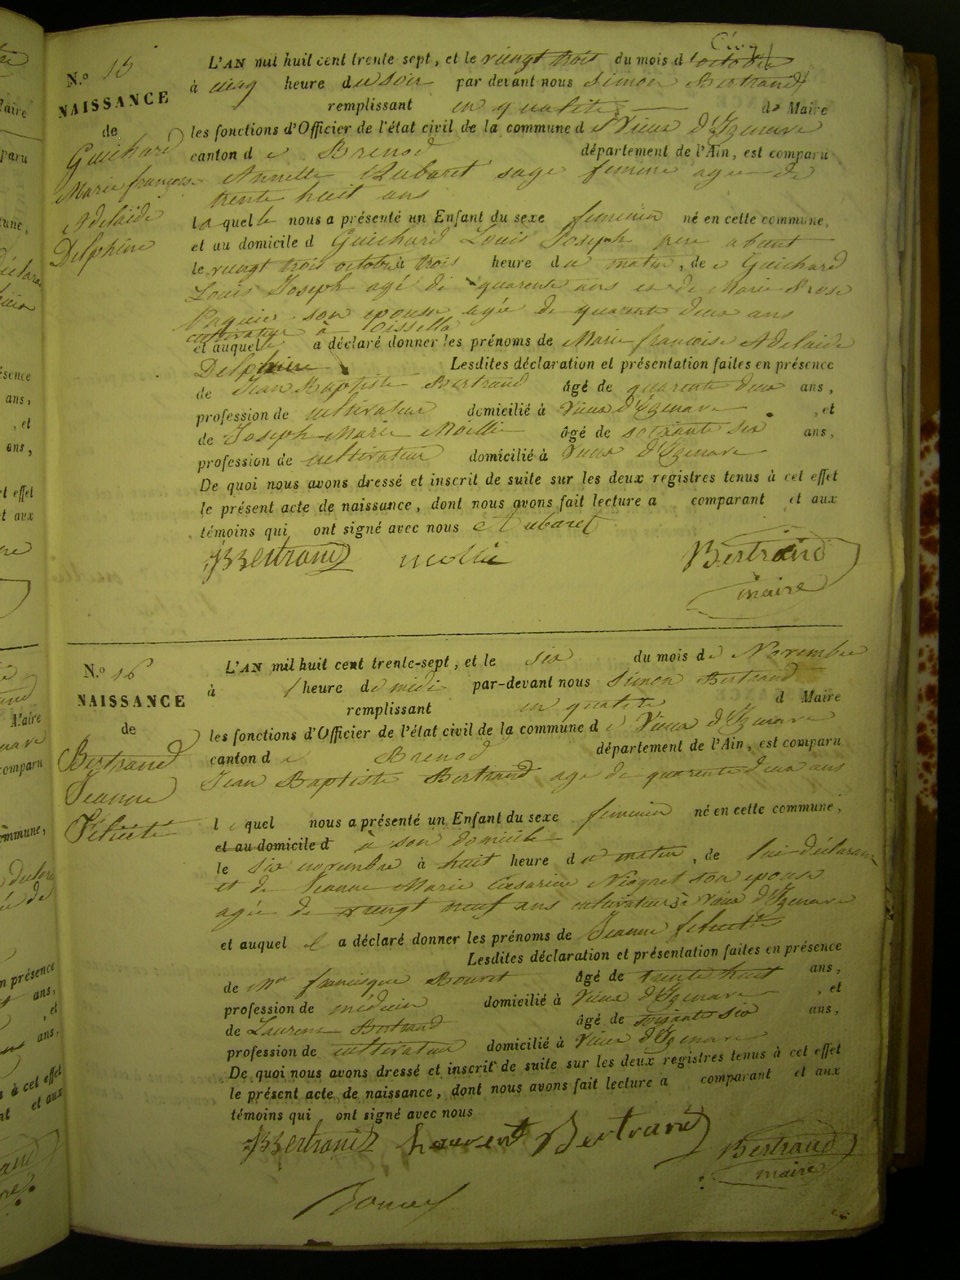 N.º 15
NAISSANCE
de
Guichard
Marie françoise
Adelaïde
Delphine
L'AN mil huit cent trente sept, et le vingt trois du mois d'octobre
à cinq heure du soir par devant nous Simon Bertrand
remplissant en qualité de Maire
les fonctions d'Officier de l'état civil de la commune de Vieux d'Izenave
canton de Brenod département de l'Ain, est comparu
Annette Cubaret sage femme agée de
trente huit ans
laquelle nous a présenté un Enfant du sexe feminin né en cette commune,
et au domicile d Guichard Louis Joseph pere absent
le vingt trois octobre à trois heure du matin, de Guichard
Louis Joseph agé de quarente ans et de Marie Rose
Paquier son epouse agée de quarente deux ans
cultivateur à Oisselle
et auquel a déclaré donner les prénoms de Marie françoise Adelaide
Delphine Lesdites déclaration et présentation faites en présence
de Jean Baptiste Bertrand âgé de quarente deux ans,
profession de cultivateur domicilié à Vieux d'Izenave , et
de Joseph Marie Mollie âgé de soixante six ans,
profession de cultivateur domicilié à Vieux d'Izenave
De quoi nous avons dressé et inscrit de suite sur les deux registres tenus à cet effet
le présent acte de naissance, dont nous avons fait lecture a comparant et aux
témoins qui ont signé avec nous Cubaret
JBBertrand mollie Bertrand
maire
N.º 16
NAISSANCE
de
Bertrand
Jeanne
Félicité
L'AN mil huit cent trente-sept, et le six du mois de Novembre
à heure de midi par-devant nous Simon Bertrand
remplissant en qualité d Maire
les fonctions d'Officier de l'état civil de la commune de Vieux d'Izenave
canton de Brenod département de l'Ain, est comparu
Jean Baptiste Bertrand age de quarente deux ans
lequel nous a présenté un Enfant du sexe feminin né en cette commune,
et au domicile d à son domicile
le six novembre à huit heure du matin, de lui déclarant
et de Jeanne Marie Cesarine Niogret son epouse
agée de vingt neuf ans cultivateurs à Vieux d'Izenave
et auquel il a déclaré donner les prénoms de Jeanne felicité
Lesdites déclaration et présentation faites en présence
de Mr francisque Bouret âgé de trente huit ans,
profession de médecin domicilié à Vieux d'Izenave , et
de Laurent Bertrand âgé de soixante six ans,
profession de cultivateur domicilié à Vieux d'Izenave
De quoi nous avons dressé et inscrit de suite sur les deux registres tenus à cet effet
le présent acte de naissance, dont nous avons fait lecture a comparant et aux
témoins qui ont signé avec nous
JBBertrand Laurent Bertrand Bertrand
maire